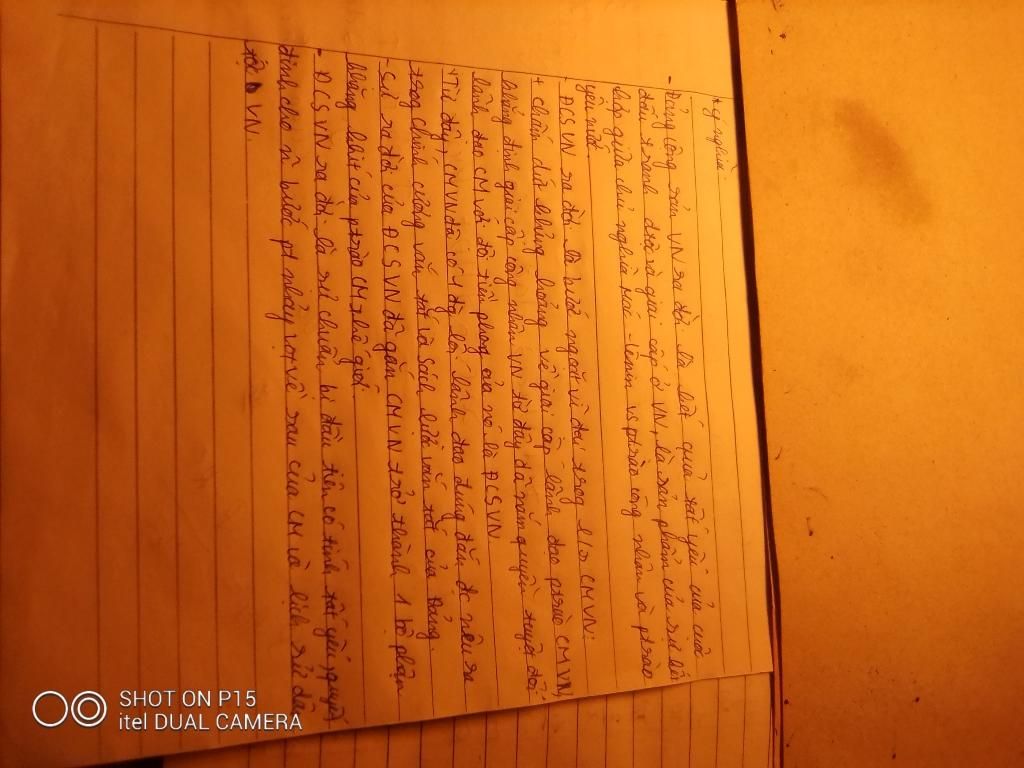 * Ý nghĩa:
- Đảng Cộng sản VN ra đời là kết quả tất yếu của cuộc
đấu tranh dtộc và giai cấp ở VN, là sản phẩm của sự kết
hợp giữa chủ nghĩa Mác - Lênin vs ptrào công nhân và ptrào
yêu nước
- ĐCSVN ra đời là bước ngoặt vĩ đại trong l/s CMVN:
+ chấm dứt khủng hoảng về giai cấp lãnh đạo ptrào CMVN,
khẳng định giai cấp công nhân VN từ đây đã nắm quyền tuyệt đối
lãnh đạo CM với đội tiên phong của nó là ĐCSVN.
+ Từ đây, CMVN đã có 1 đg lối lãnh đạo đúng đắn đc nêu ra
trong chính cương vắn tắt và sách lược vắn tắt của Đảng.
- Sự ra đời của ĐCSVN đã gắn CMVN trở thành 1 bộ phận
khăng khít của ptrào CM thế giới.
- ĐCSVN ra đời là sự chuẩn bị đầu tiên có tính tất yếu, quyết
định cho n~ bước pt nhảy vọt về sau của CM và lịch sử dân
tộc VN.
SHOT ON P15
itel DUAL CAMERA